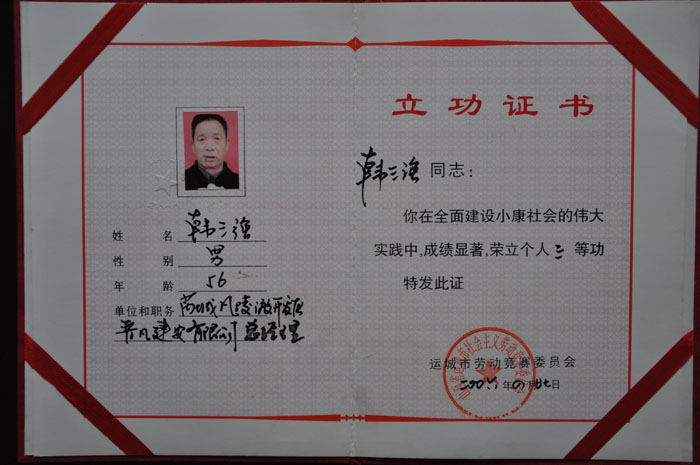 姓 名 韩三强
性 别 男
年 龄 56
单位和职务 芮城风陵渡开发区
平凡建安有限公司 总经理
立功证书
韩三强 同志：
你在全面建设小康社会的伟大
实践中,成绩显著,荣立个人 三 等功
特发此证
运城市劳动竞赛委员会
年 月 日